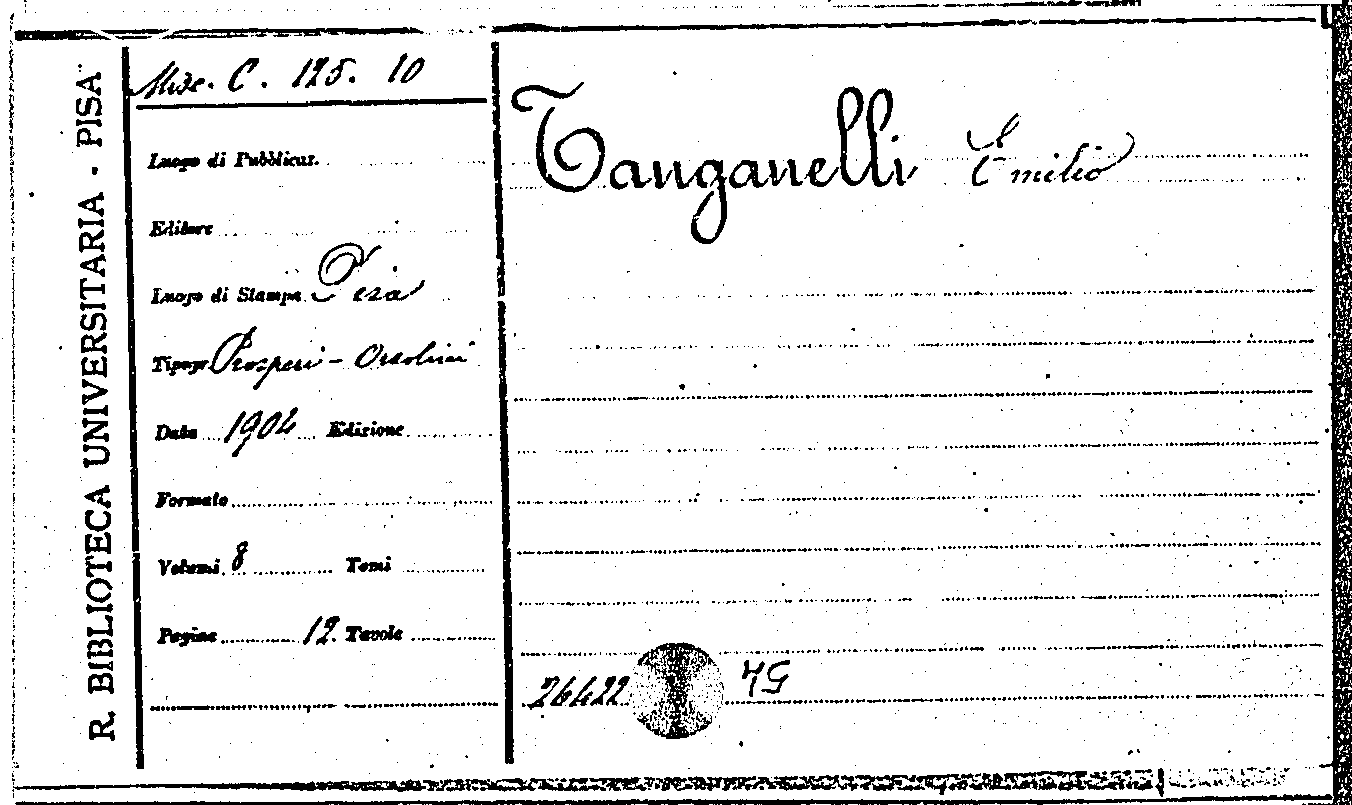 R. BIBLIOTECA UNIVERSITARIA . PISA
Misc. C. 125. 10
Luogo di Pubblicaz.
Editore
Luogo di Stampa Pisa
Tipogr. Prosperi - Orsolini
Data 1904 Edizione
Formato
Volumi 8 Tomi
Pagine 12. Tavole
Tanganelli Emilio
26422